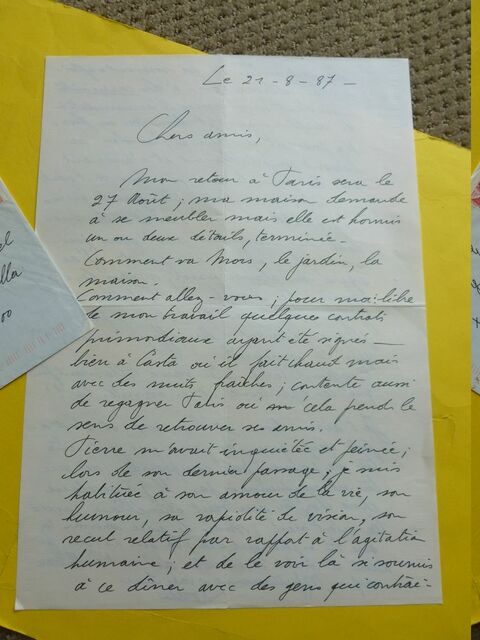 Le 21 - 8 - 87 -
Chers amis,
Mon retour à Paris sera le
27 Août ; ma maison demande
à se meubler mais elle est hormis
un ou deux détails, terminée -
Comment va Mors, le jardin, la
maison.
Comment allez-vous ; pour moi : libre
de mon travail quelques contrats
primordiaux ayant été signés —
bien à Casta où il fait chaud mais
avec des nuits fraîches ; contente aussi
de regagner Paris où cela prend le
sens de retrouver ses amis.
Pierre m'avait inquiétée et peinée ;
lors de son dernier passage ; je suis
habituée à son amour de la vie, son
humour, sa rapidité de vision, son
recul relatif par rapport à l'agitation
humaine ; et de le voir là si soumis
à ce dîner avec des gens qui contrai-
el
lla
00